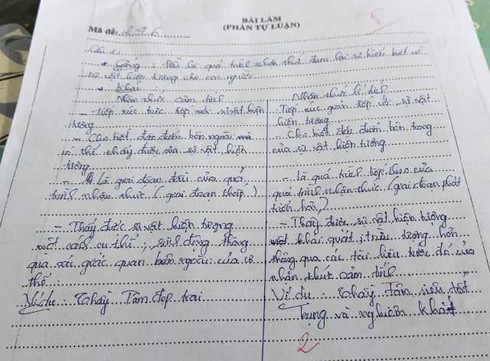 BÀI LÀM
(PHẦN TỰ LUẬN)
Mã đề:
5
Câu
Giống: Đều là quá trình nhận thức đem lại sự hiểu biết về
sự vật hiện tượng cho con người
Khác:
Nhận thức cảm tính
- Tiếp xúc trực tiếp với sự vật hiện
tượng
- Cho biết đặc điểm bên ngoài mà
có thể thấy được của sự vật hiện
tượng
- Là giai đoạn đầu của quá
trình nhận thức (giai đoạn thấp)
- Thấy được sự vật hiện tượng
một cách cụ thể, sinh động thông
qua các giác quan bên ngoài của cơ
thể
Ví dụ: Thầy Tâm đẹp trai
Nhận thức lí tính
Tiếp xúc gián tiếp với sự vật
hiện tượng
- Cho biết đặc điểm bên trong
của sự vật hiện tượng
- Là quá trình tiếp theo của
quá trình nhận thức (giai đoạn phát
triển)
- Thấy được sự vật hiện tượng
một khái quát, trừu tượng hơn
thông qua các tài liệu trước đó của
nhận thức cảm tính
Ví dụ: Thầy tâm siêu tập
trung và nghiêm khắc
2